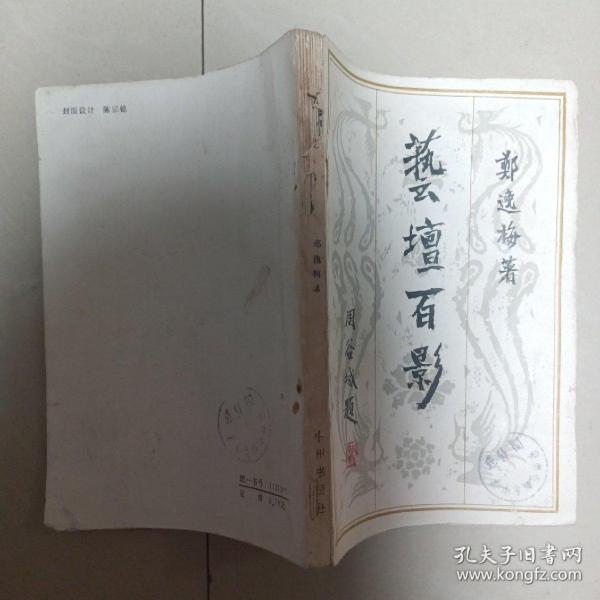 藝壇百影
鄭逸梅著
周谷城題
郑逸梅著
中州书画社
封面设计 陈宗铭
定价
孔夫子旧书网
www.kongfz.com